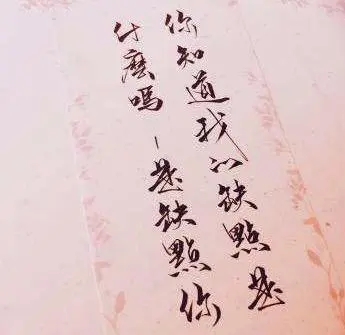 你知道我的缺點是
什麼嗎－是缺點你